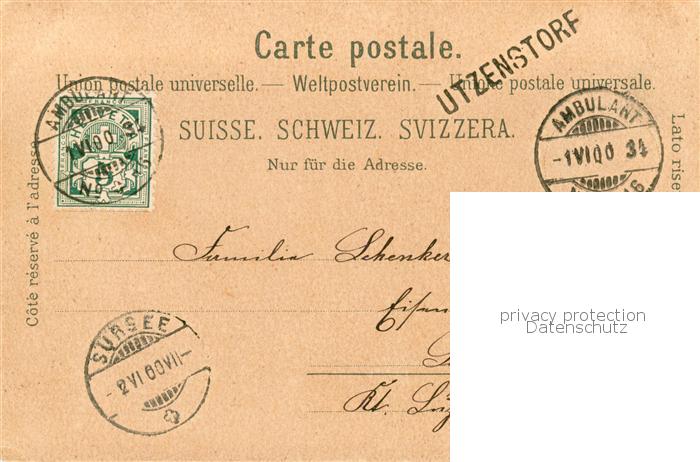 Carte postale.
UTZENSTORF
Union postale universelle. — Weltpostverein. — Unione postale universale.
SUISSE. SCHWEIZ. SVIZZERA.
Nur für die Adresse.
Côté réservé à l'adresse
Lato rise
AMBULANT
1 VI 00
AMBULANT
-1 VI 00 34
FRANCO
Familie Schenker
privacy protection
Datenschutz
SURSEE
-2 VI 00 VII-
Kt. Luz